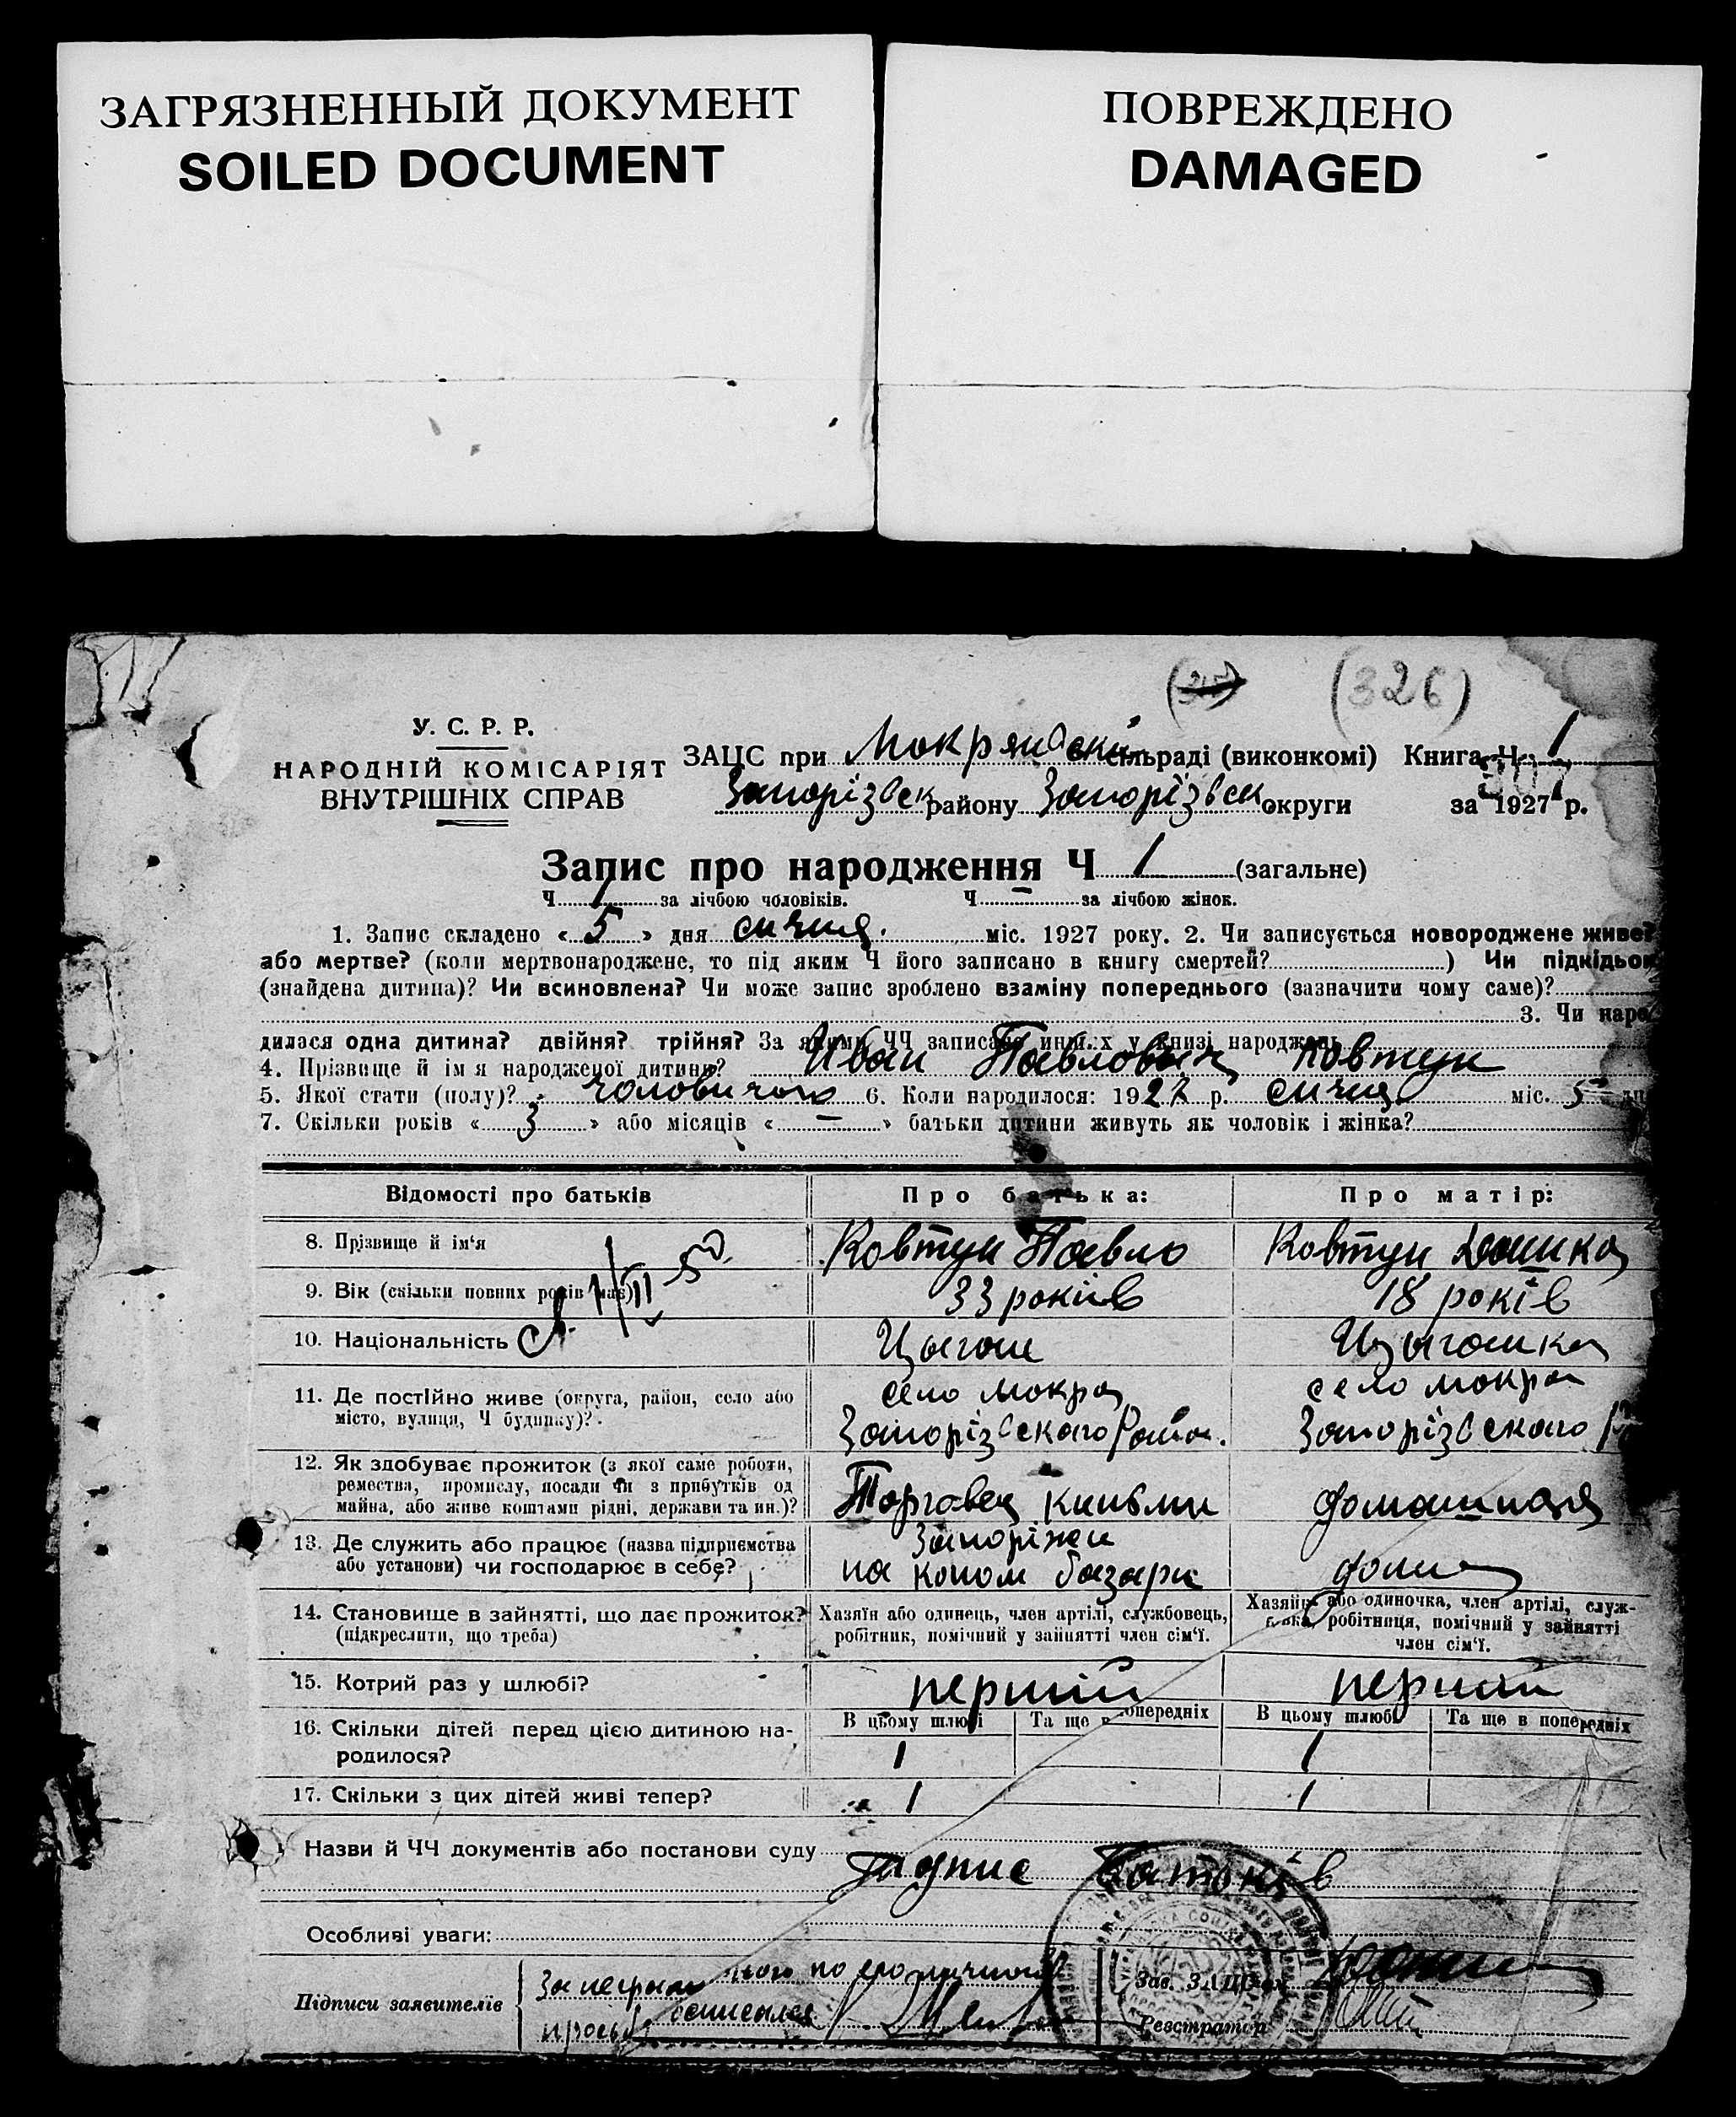 ЗАГРЯЗНЕННЫЙ ДОКУМЕНТ
SOILED DOCUMENT
ПОВРЕЖДЕНО
DAMAGED
(326)
У. С. Р. Р.
НАРОДНІЙ КОМІСАРІЯТ
ВНУТРІШНІХ СПРАВ
ЗАЦС при Мокрянській сільраді (виконкомі) Книга Ч. 1
Запорізьск району Запорізьск округи за 1927 р.
Запис про народження Ч 1 (загальне)
Ч 1 за лічбою чоловіків. Ч – за лічбою жінок.
1. Запис складено «5» дня сичня міс. 1927 року. 2. Чи записується новороджене живе?
або мертве? (коли мертвонароджене, то під яким Ч його записано в книгу смертей? ) Чи підкідьок
(знайдена дитина)? Чи всиновлена? Чи може запис зроблено взаміну попереднього (зазначити чому саме)?
3. Чи наро
дилася одна дитина? двійня? трійня? За якими ЧЧ записано инших у книзі народжень
4. Прізвище й ім я народженої дитини? Иван Павлович Ковтун
5. Якої стати (полу)? чоловичого 6. Коли народилося: 1927 р. сичня міс. 5 дня
7. Скільки років « 3 » або місяців « – » батьки дитини живуть як чоловік і жінка?
Відомості про батьків Про батька: Про матір:
8. Прізвище й ім‘я Ковтун Павло Ковтун
9. Вік (скільки повних років має) 33 років 18 років
10. Національність Цыган Цыганка
11. Де постійно живе (округа, район, село або село мокра село мокра
місто, вулиця, Ч будинку)? Запорізьского Район. Запорізьского
12. Як здобуває прожиток (з якої саме роботи,
ремества, промислу, посади чи з прибутків од
майна, або живе коштами рідні, держави та ин.)? Торговец киньми домашная
13. Де служить або працює (назва підприємства Запоріжи
або установи) чи господарює в себе? на коном базари дома
14. Становище в зайнятті, що дає прожиток? Хазяїн або одинець, член артілі, службовець, Хазяйка або одиночка, член артілі, служ-
(підкреслити, що треба) робітник, помічний у зайнятті член сім‘ї. бовка, робітниця, помічний у зайнятті
член сім‘ї.
15. Котрий раз у шлюбі? перший перший
16. Скільки дітей перед цією дитиною на- В цьому шлюбі Та ще в попередніх В цьому шлюбі Та ще в попередніх
родилося? 1 1
17. Скільки з цих дітей живі тепер? 1 1
Назви й ЧЧ документів або постанови суду
Підпис Батьків
Особливі уваги:
Підписи заявителів
За неграмотного по его личной
просьбі
Зав. ЗАЦСом
Реєстратор